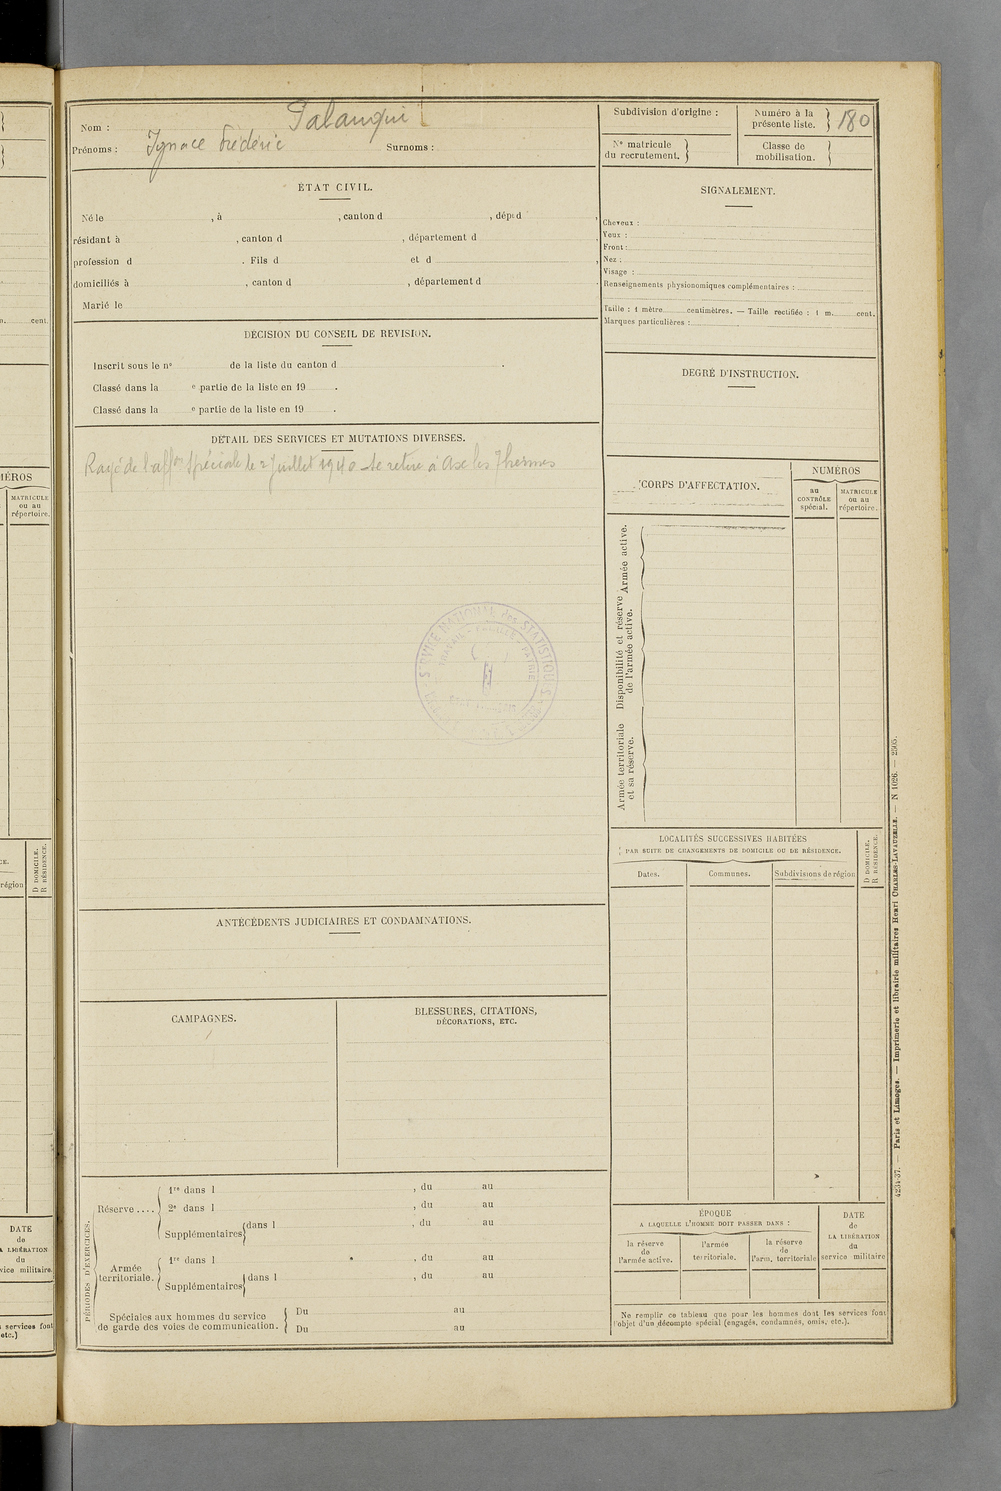 Nom : Palanqui
Prénoms : Ignace Frédéric Surnoms :
Subdivision d'origine :
Numéro à la
présente liste. 180
Nº matricule
du recrutement.
Classe de
mobilisation.
ÉTAT CIVIL.
Né le , à , canton d , dépt d ,
résidant à , canton d , département d ,
profession d . Fils d et d ,
domiciliés à , canton d , département d .
Marié le
SIGNALEMENT.
Cheveux :
Yeux :
Front :
Nez :
Visage :
Renseignements physionomiques complémentaires :
Taille : 1 mètre centimètres. — Taille rectifiée : 1 m. cent.
Marques particulières :
DÉCISION DU CONSEIL DE REVISION.
Inscrit sous le nº de la liste du canton d .
Classé dans la e partie de la liste en 19 .
Classé dans la e partie de la liste en 19 .
DEGRÉ D'INSTRUCTION.
DÉTAIL DES SERVICES ET MUTATIONS DIVERSES.
Rayé de l'affon Spéciale le 2 Juillet 1940 - Se retire à Ax les Thermes
SERVICE NATIONAL des STATISTIQUES
TRAVAIL - FAMILLE - PATRIE
CORPS D'AFFECTATION.
NUMÉROS
au
CONTRÔLE
spécial.
MATRICULE
ou au
répertoire.
Armée active.
Disponibilité et réserve
de l'armée active.
Armée territoriale
et sa réserve.
LOCALITÉS SUCCESSIVES HABITÉES
PAR SUITE DE CHANGEMENTS DE DOMICILE OU DE RÉSIDENCE.
D DOMICILE.
R RÉSIDENCE.
Dates.
Communes.
Subdivisions de région
ANTÉCÉDENTS JUDICIAIRES ET CONDAMNATIONS.
CAMPAGNES.
BLESSURES, CITATIONS,
DÉCORATIONS, ETC.
PÉRIODES D'EXERCICES.
Réserve ....
1re dans l , du au
2e dans l , du au
Supplémentaires dans l , du au
Armée
territoriale.
1re dans l , du au
Supplémentaires dans l , du au
Spéciales aux hommes du service
de garde des voies de communication.
Du au
Du au
ÉPOQUE
A LAQUELLE L'HOMME DOIT PASSER DANS :
la réserve
de
l'armée active.
l'armée
territoriale.
la réserve
de
l'arm. territoriale
DATE
de
LA LIBÉRATION
du
service militaire
Ne remplir ce tableau que pour les hommes dont les services font
l'objet d'un décompte spécial (engagés, condamnés, omis, etc.).
4234-37. — Paris et Limoges. — Imprimerie et librairie militaires Henri CHARLES-LAVAUZELLE. — N 1026. — 2505.
cent.
MÉROS
MATRICULE
ou au
répertoire.
D DOMICILE.
R RÉSIDENCE.
région
DATE
de
LA LIBÉRATION
du
vice militaire.
services font
etc.)